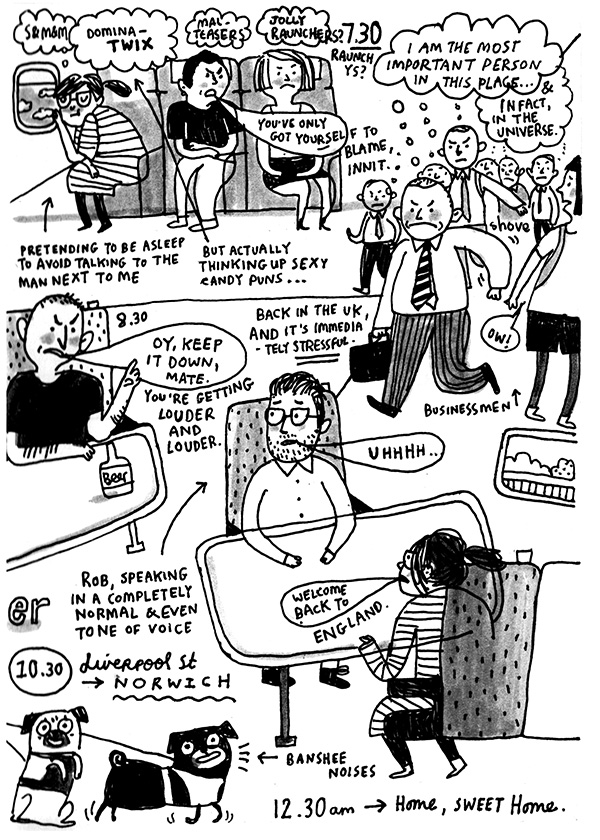 S&M&M
DOMINA-
TWIX
MAL-
TEASERS
JOLLY
RAUNCHERS?
7.30
RAUNCH
YS?
I AM THE MOST
IMPORTANT PERSON
IN THIS PLACE...
&
IN FACT,
IN THE
UNIVERSE.
YOU'VE ONLY
GOT YOURSELF TO
BLAME,
INNIT.
shove
OW!
PRETENDING TO BE ASLEEP
TO AVOID TALKING TO THE
MAN NEXT TO ME
BUT ACTUALLY
THINKING UP SEXY
CANDY PUNS...
BUSINESSMEN
8.30
BACK IN THE UK,
AND IT'S IMMEDIA
-TELY STRESSFUL.
OY, KEEP
IT DOWN,
MATE.
YOU'RE GETTING
LOUDER
AND
LOUDER.
Beer
UHHHH..
ROB, SPEAKING
IN A COMPLETELY
NORMAL & EVEN
TONE OF VOICE
WELCOME
BACK TO
ENGLAND.
er
10.30
Liverpool St
→ NORWICH
← BANSHEE
NOISES
12.30am → Home, SWEET Home.